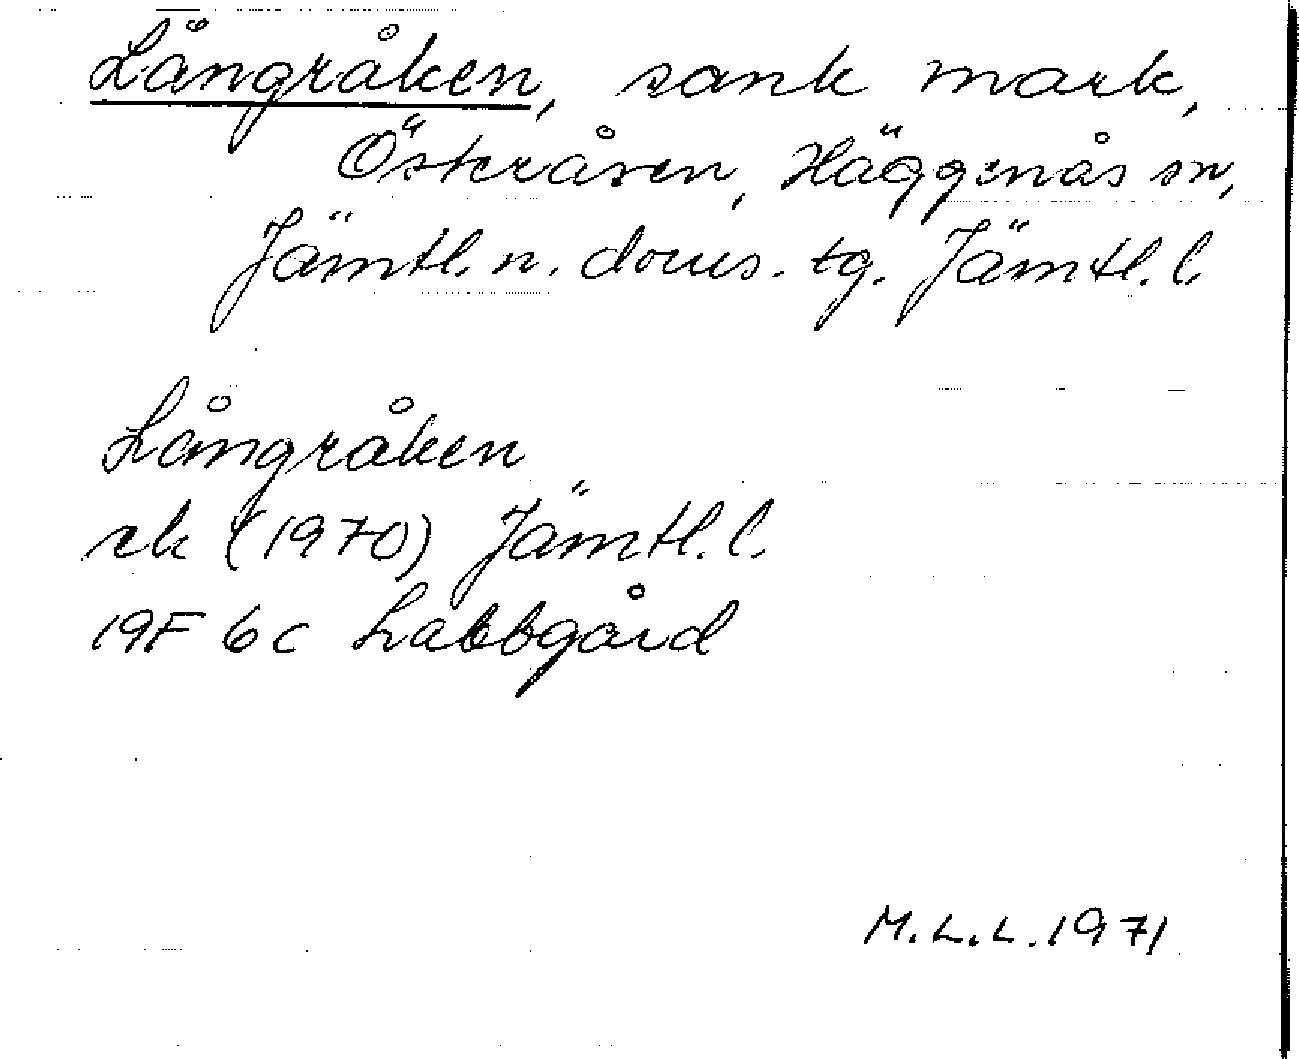 Långråken, sank mark,
Österåsen, Häggenås sn,
Jämtl. n. doms. tg. Jämtl. l.
Långråken
rk (1970) Jämtl. l.
19F 6c Labbgård
M.L.L. 1971